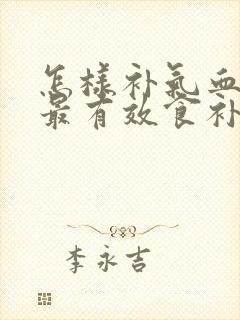 怎样补氣血
最有效食补
李永吉